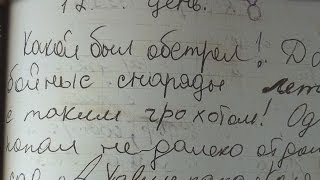 12 . день. 8
Какой был обстрел! До
бойные снаряды лет
с таким грохотом! Од
попал не далеко от